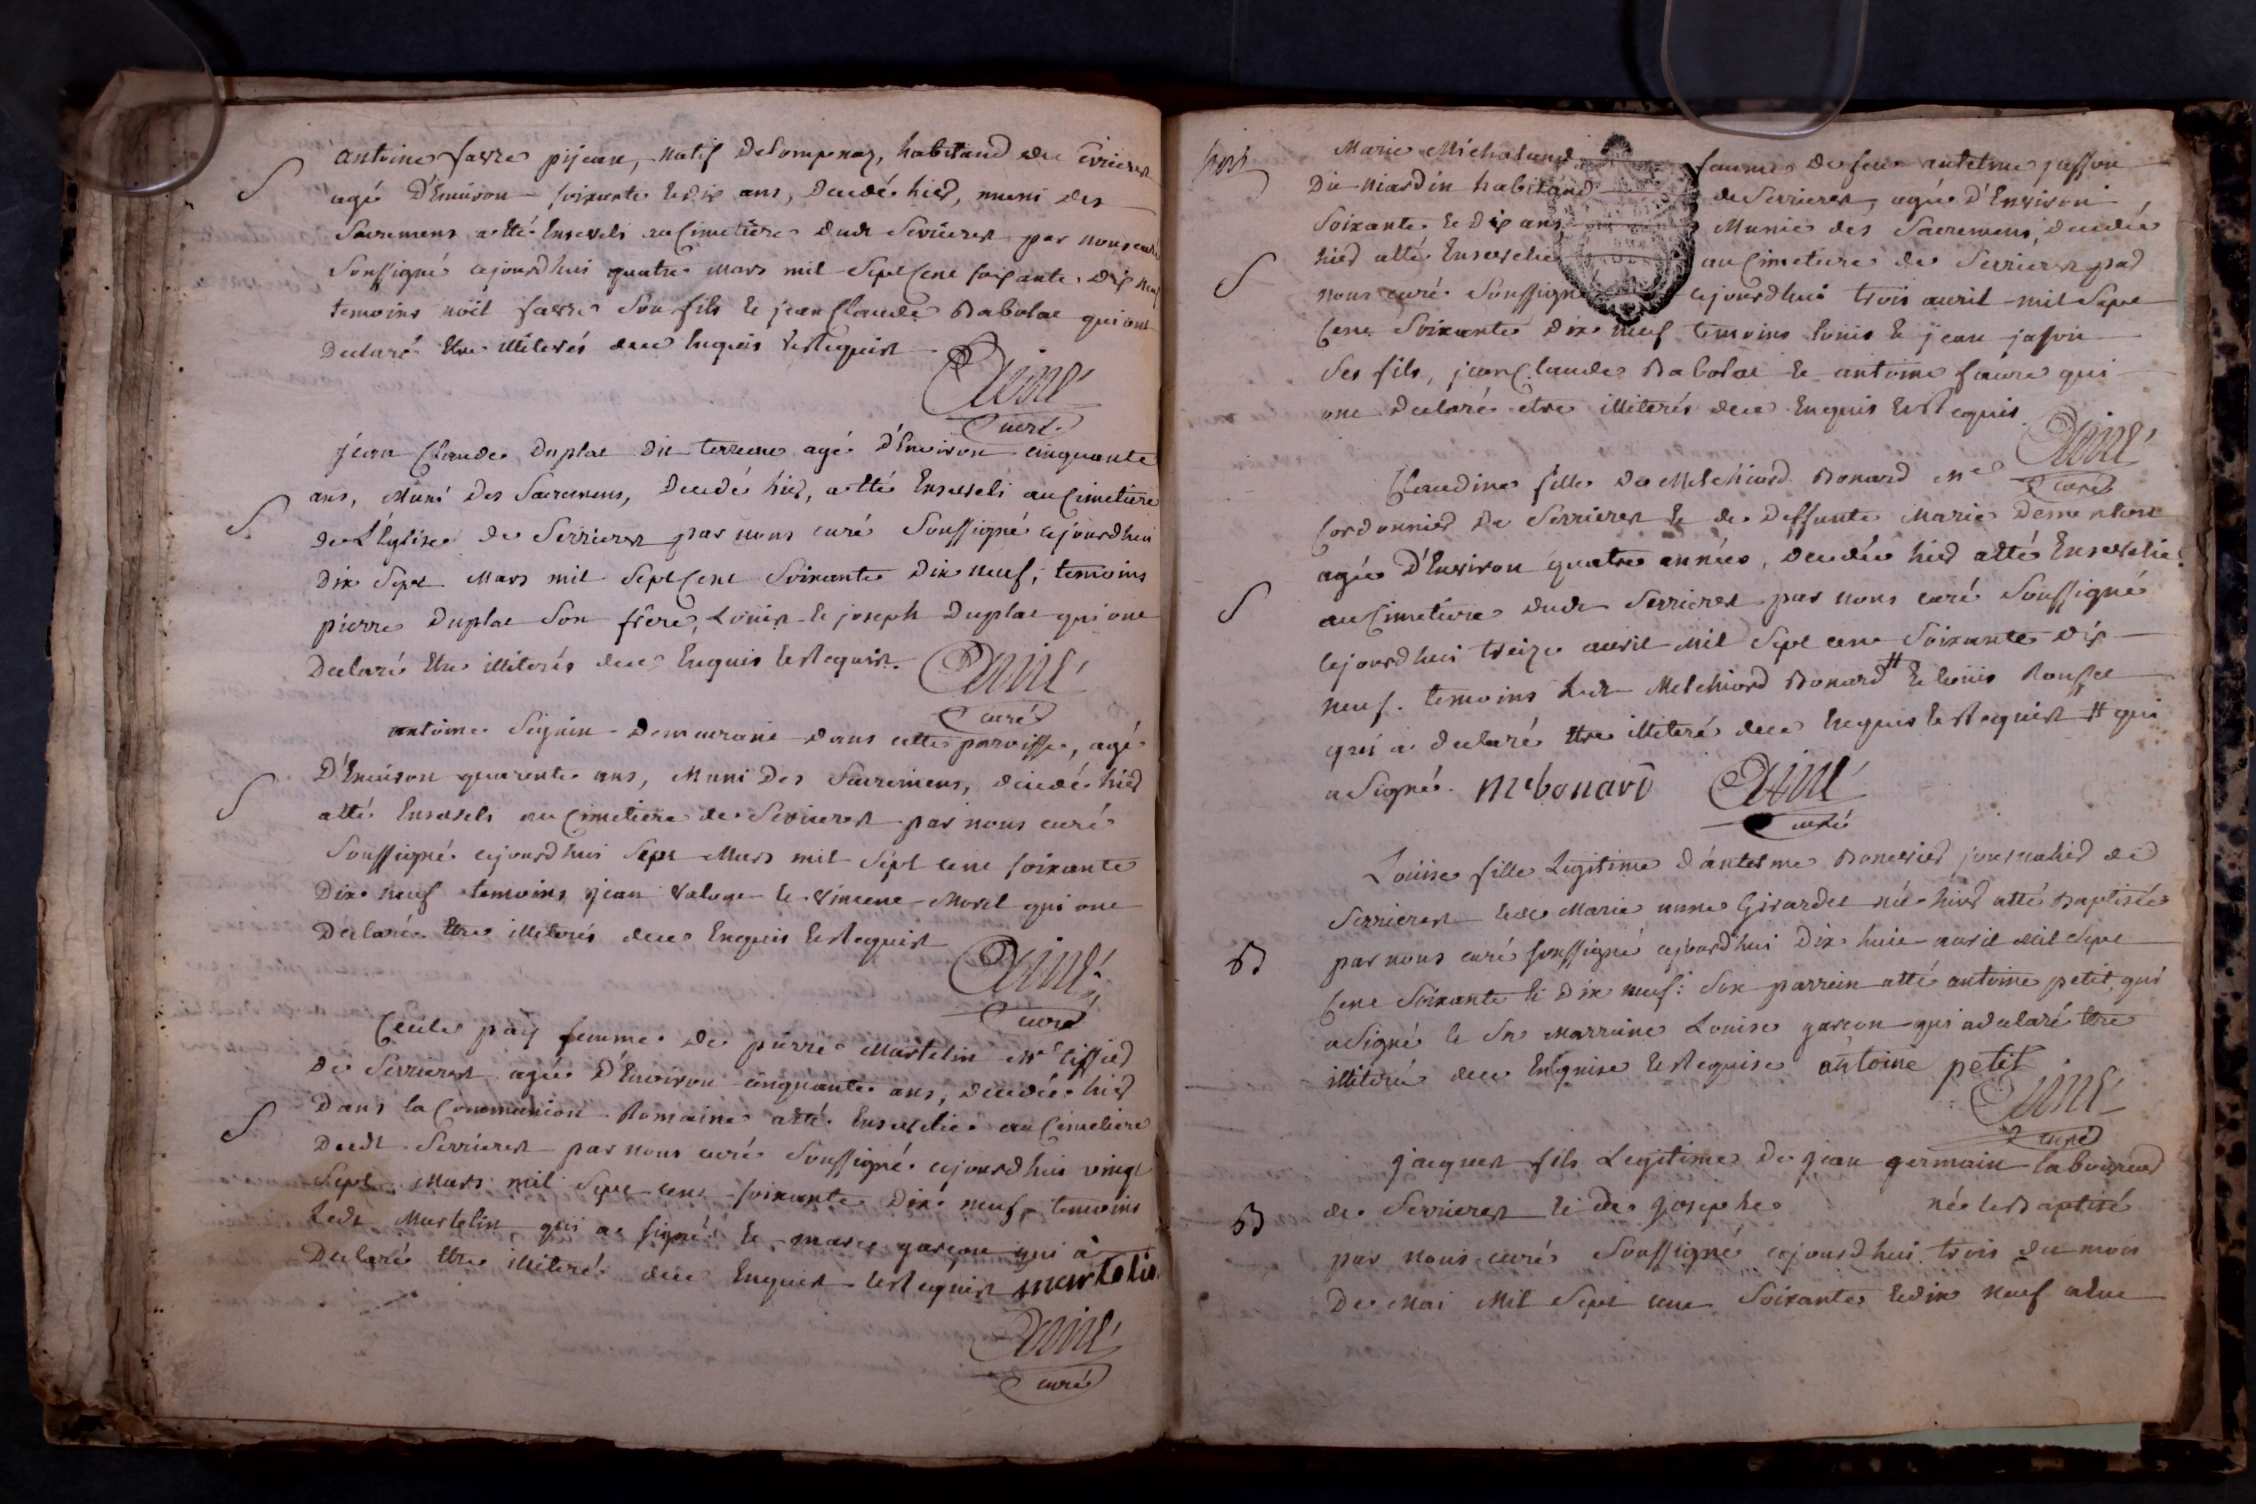 antoine favre pijean, natif de Lompnaz, habitand de Serrieres
S
agé D'Environ soixante et dix ans, decedé hier, muni des
Sacremens a été Enseveli au Cimetiere dudt Serrieres par nous curé
Soussigné cejourdhui quatre mars mil Sept Cent soixante dix neuf
temoins noël favre son fils et jean Claude Babolat qui ont
Declaré Etre illiterés dece Enquis et Requis
Curé
jean Claude Duplat dit agé d'Environ cinquante
ans, Muni Des Sacremens, Decedé hier, a été Enseveli au Cimetiere
S
de L'Eglise de Serrieres par nous curé Soussigné cejourdhui
Dix Sept Mars mil Sept Cent Soixante Dix neuf, temoins
pierre Duplat Son frère, Louis et joseph Duplat qui ont
Declaré Etre illiterés dece Enquis et Requis.
curé
antoine Seguin Demeurant dans cette paroisse, agé
D'Environ quarente ans, Muni Des Sacremens, decedé hier
S
a été Enseveli au Cimetiere de Serrieres par nous curé
Soussigné cejourdhui Sept Mars mil Sept cent soixante
Dix neuf temoins jean et Vincent Morel qui ont
Declaré Etre illiterés dece Enquis et Requis
curé
Cecile pay femme de pierre Martelin Me
De Serrieres agée D'Environ cinquante ans, decedée hier
Dans la Communion Romaine a été Ensevelie au Cimetiere
S
Dudt Serrieres par nous curé Soussigné cejourdhui vingt
Sept Mars mil Sept cent soixante Dix neuf, temoins
Ledt Martelin qui a signé et marc garçon qui a
Declaré Etre illiteré dece Enquis et Requis martelin
curé
Marie Micholand femme de feu antelme jasson
Du niardin habitand de Serrieres, agée d'Environ
Soixante et Dix ans Munie des Sacremens, decedée
hier a été Ensevelie au Cimetiere de Serrieres par
S
nous curé Soussigné cejourdhui trois avril mil Sept
Cent Soixante dix neuf temoins Louis et jean jasson
Ses fils, jean Claude Babolat et antoine faure qui
ont declaré etre illiterés dece Enquis et Requis
curé
Claudine fille de Melchiord Bonard Me
Cordonnier de Serrieres et de Deffunte Marie
agée D'Environ quatre années, decedée hier a été Ensevelie
au Cimetiere dudt Serrieres par nous curé Soussigné
S
cejourdhui treize avril mil Sept cent Soixante dix
neuf. temoins Ledt Melchiord Bonard # et Louis Rousset
qui a declaré etre illiteré dece Enquis et Requis # qui
a Signé. M bonard
curé
Louise fille Legitime d'antelme journalier de
Serrieres et de Marie anne Girardet née hier a été Baptisée
B
par nous curé soussigné cejourdhui Dix huit avril mil Sept
Cent Soixante et Dix neuf: Son parrein a été antoine petit, qui
a Signé et Sa Marraine Louise garçon qui a declaré etre
illiterée dece Enquise et Requise antoine petit
curé
jacques fils Legitime de jean germain laboureur
B
de Serrieres et de josephe né et Baptisé
par nous curé Soussigné cejourdhui trois du mois
De Mai Mil Sept cent Soixante et dix neuf